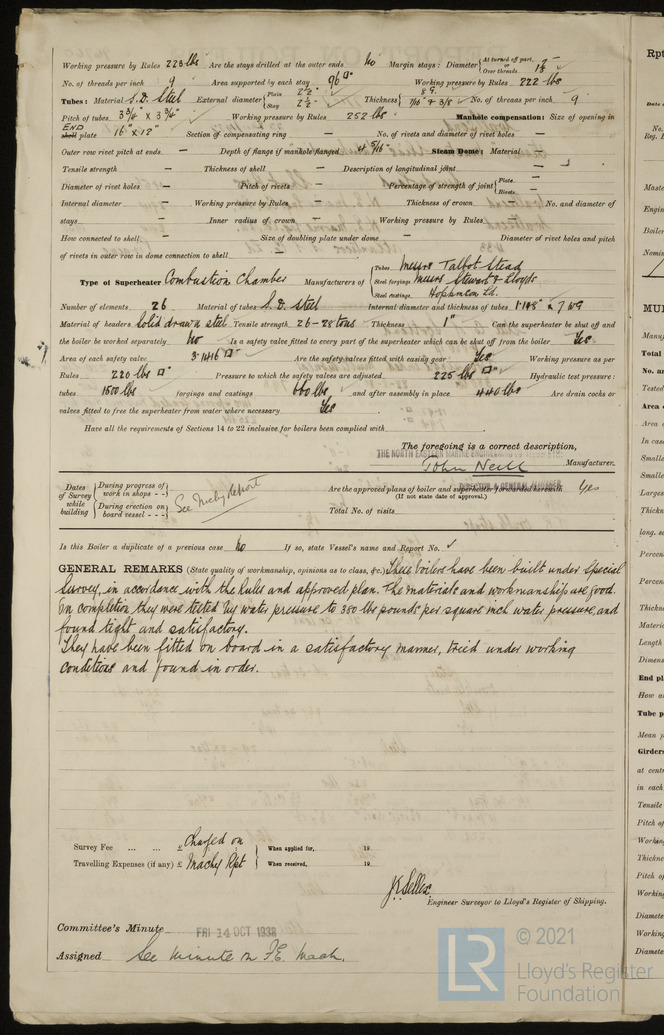 Working pressure by Rules 223 lbs Are the stays drilled at the outer ends No Margin stays: Diameter { At turned off part, or Over threads
No. of threads per inch 9 Area supported by each stay 96 □" Working pressure by Rules 222 lbs
Tubes: Material S.D. Steel External diameter { Plain 2½" Stay 2½" Thickness { 8 G. 7/16" & 3/8 No. of threads per inch 9
Pitch of tubes 3¾" x 3¾" Working pressure by Rules 252 lbs Manhole compensation: Size of opening in
END shell plate 16" x 12" Section of compensating ring — No. of rivets and diameter of rivet holes —
Outer row rivet pitch at ends — Depth of flange if manhole flanged 4 5/16" Steam Dome: Material —
Tensile strength — Thickness of shell — Description of longitudinal joint —
Diameter of rivet holes — Pitch of rivets — Percentage of strength of joint { Plate — Rivets —
Internal diameter — Working pressure by Rules — Thickness of crown — No. and diameter of
stays — Inner radius of crown — Working pressure by Rules —
How connected to shell — Size of doubling plate under dome — Diameter of rivet holes and pitch
of rivets in outer row in dome connection to shell —
Type of Superheater Combustion Chamber Manufacturers of { Tubes Messrs Talbot Stead Steel forgings Messrs Stewart & Lloyds Steel castings Hopkinson Ld.
Number of elements 26 Material of tubes S.D. Steel Internal diameter and thickness of tubes 7 WG
Material of headers Solid drawn steel Tensile strength 26-28 tons Thickness 1" Can the superheater be shut off and
the boiler be worked separately No Is a safety valve fitted to every part of the superheater which can be shut off from the boiler Yes
Area of each safety valve 3.1416 □" Are the safety valves fitted with easing gear Yes Working pressure as per
Rules 220 lbs □" Pressure to which the safety valves are adjusted 225 lbs □" Hydraulic test pressure:
tubes 1500 lbs forgings and castings 660 lbs and after assembly in place 440 lbs Are drain cocks or
valves fitted to free the superheater from water where necessary Yes
Have all the requirements of Sections 14 to 22 inclusive for boilers been complied with
The foregoing is a correct description,
THE NORTH EASTERN MARINE ENGINEERING
John Neill Manufacturer.
DIRECTOR & GENERAL MANAGER
Dates of Survey while building { During progress of work in shops - - During erection on board vessel - - - See Mchy Report
Are the approved plans of boiler and superheater forwarded herewith Yes
(If not state date of approval.)
Total No. of visits
Is this Boiler a duplicate of a previous case No If so, state Vessel's name and Report No.
GENERAL REMARKS (State quality of workmanship, opinions as to class, &c.) These boilers have been built under Special
Survey, in accordance with the Rules and approved plan. The materials and workmanship are good.
On completion they were tested by water pressure to 380 lbs pounds per square inch water pressure, and
found tight and satisfactory.
They have been fitted on board in a satisfactory manner, tried under working
conditions and found in order.
Survey Fee ... ... £ Charged on When applied for, 19
Travelling Expenses (if any) £ Machy Rpt When received, 19
Engineer Surveyor to Lloyd's Register of Shipping.
Committee's Minute FRI 14 OCT 1938
Assigned See minute on F.E. Mach.
LR © 2021
Lloyd's Register
Foundation
Rpt
Date
No.
Reg.
Maste
Engin
Boiler
Nomin
MUL
Manuf
Total
No. an
Tested
Area o
Area o
In case
Smalle
Smalle
Larges
Thickn
long. se
Percen
Percen
Thickne
Materia
Length
Dimens
End pl
How a
Tube p
Mean p
Girders
at centr
in each
Tensile
Pitch of
Working
Thickne
Pitch of
Working
Diamete
Working
Diamete